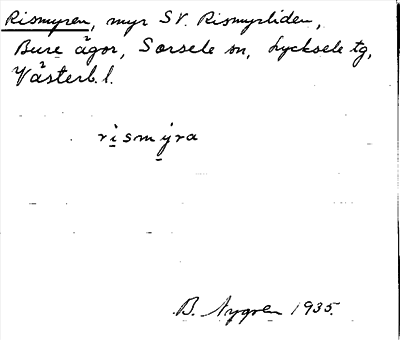 Rismyren, myr SV. Rismyrliden,
Bure ägor, Sorsele sn, Lycksele tg,
Västerb. l.
rismyra
B. Nygren 1935.